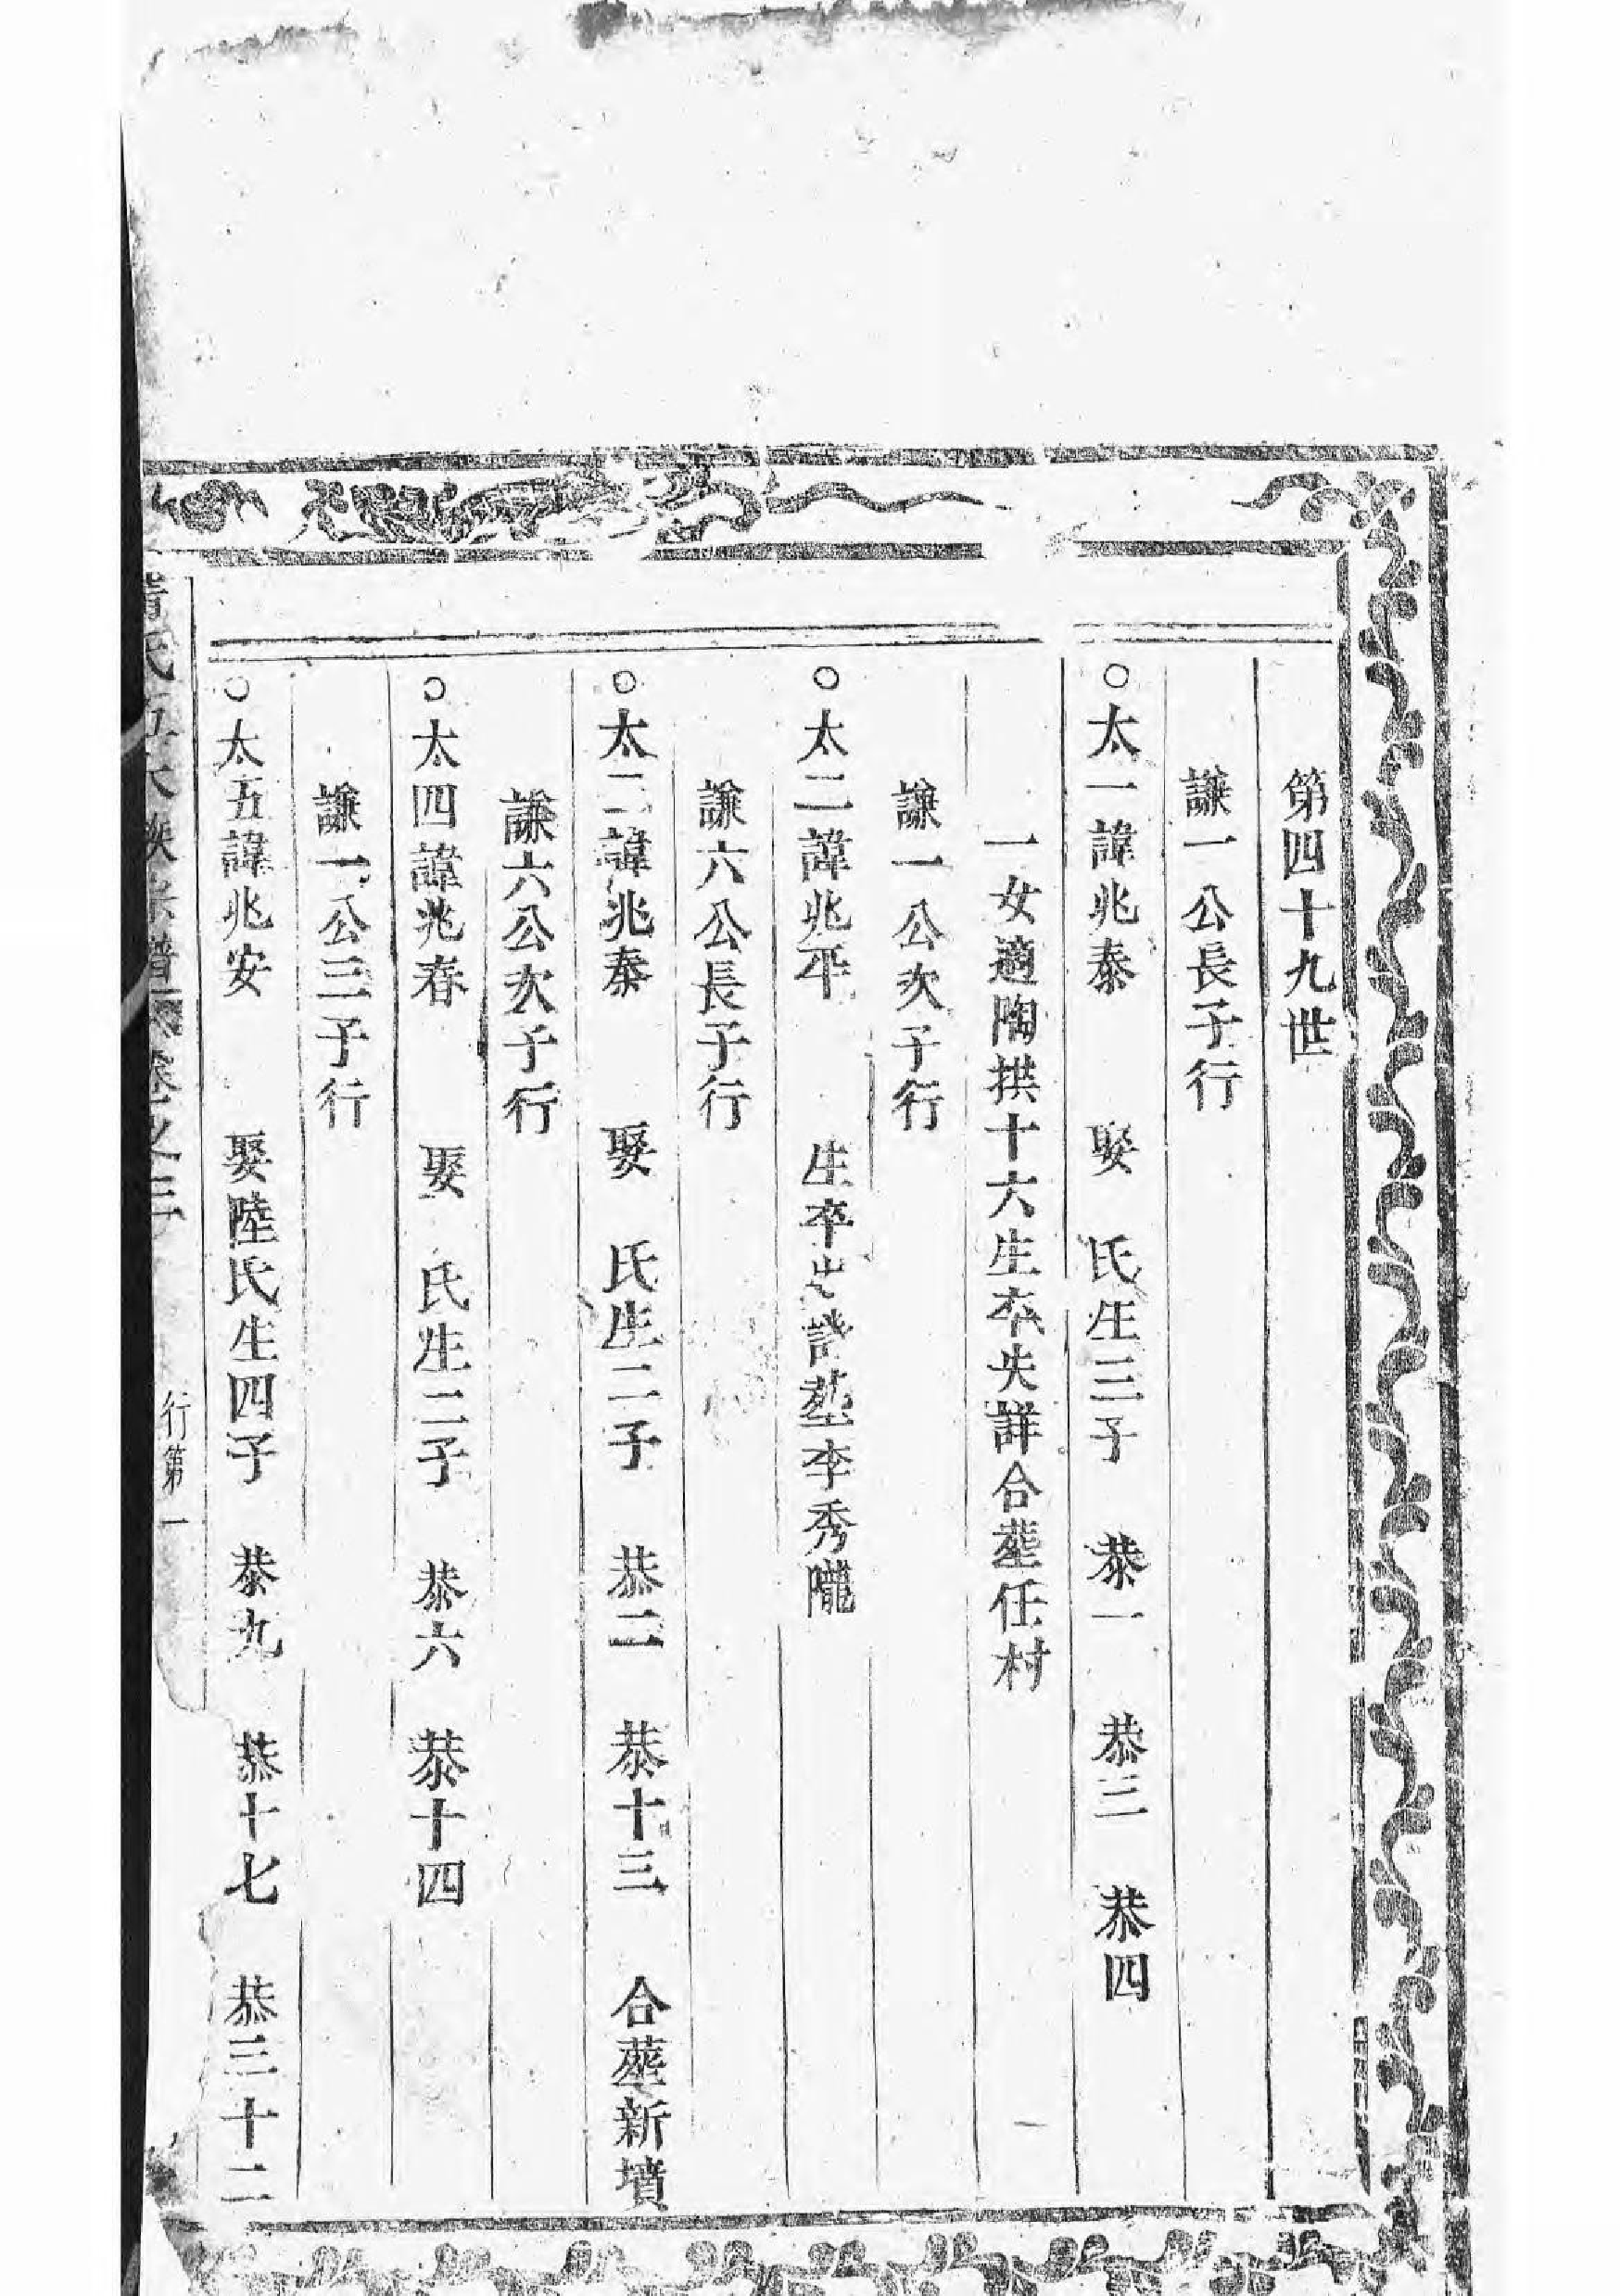 第四十九世
謙一公長子行
○太一諱兆泰　娶　氏生三子　恭一　恭三　恭四
一女適陶拱十六生卒失詳合塟任村
謙一公次子行
○太二諱兆平　生卒失詳塟李秀隴
謙六公長子行
○太二諱兆秦　娶　氏生二子　恭二　恭十三　合塟新墳
謙六公次子行
○太四諱兆春　娶　氏生二子　恭六　恭十四
謙一公三子行
○太五諱兆安　娶陸氏生四子　恭九　恭十七　恭三十二
氏　宗譜　卷之三　行第一